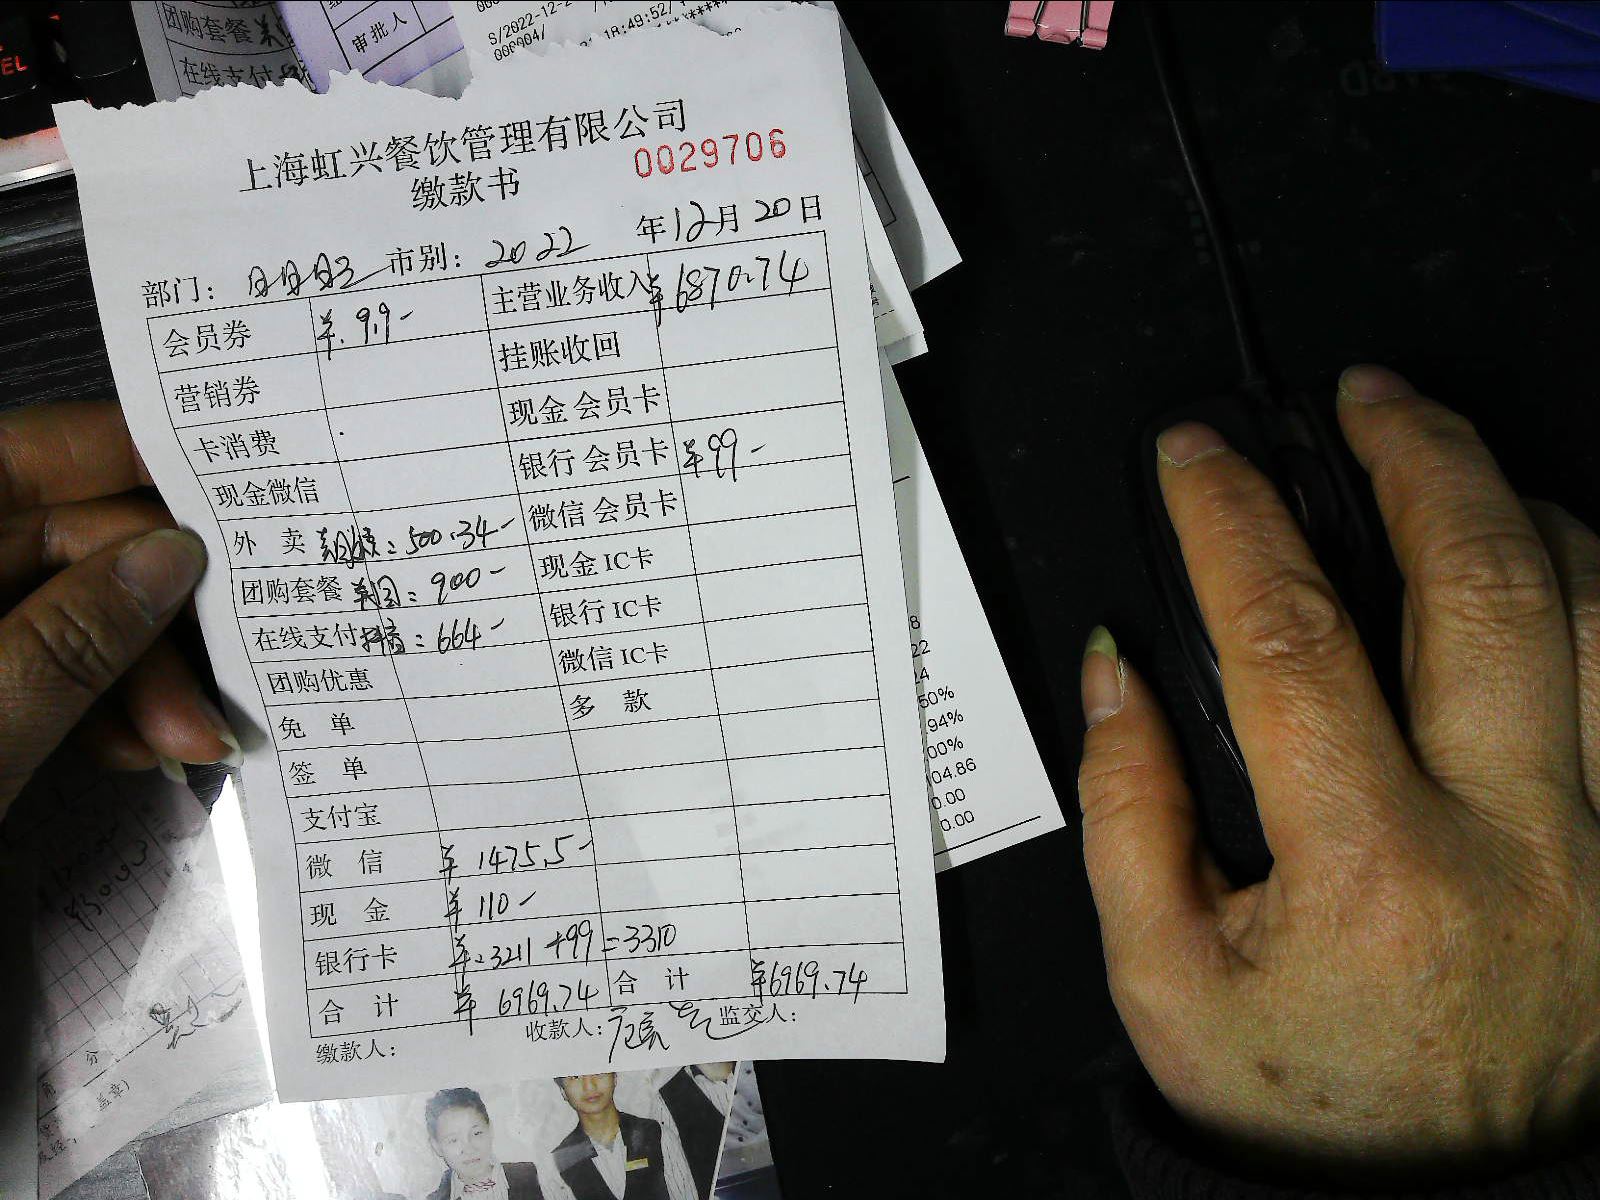 团购套餐
在线支付
审批人
S/2022-12-2
000004/
18:49:52/
上海虹兴餐饮管理有限公司
缴款书
0029706
部门： 市别： 2022 年12月20日
会员券 ¥.9.9- 主营业务收入 ¥6870.74
营销券 挂账收回
卡消费 现金 会员卡
现金微信 银行 会员卡 ¥99-
外 卖 : 500.34- 微信 会员卡
团购套餐 美团: 900- 现金 IC卡
在线支付 抖音: 664- 银行 IC卡
团购优惠 微信 IC卡
免 单 多 款
签 单
支付宝
微 信 ¥ 1475.5-
现 金 ¥ 110-
银行卡 ¥.3211 +99 =3310
合 计 ¥ 6969.74 合 计 ¥6969.74
缴款人： 收款人： 监交人：
8
22
.4
50%
.94%
00%
04.86
0.00
0.00
角 分
盖章)